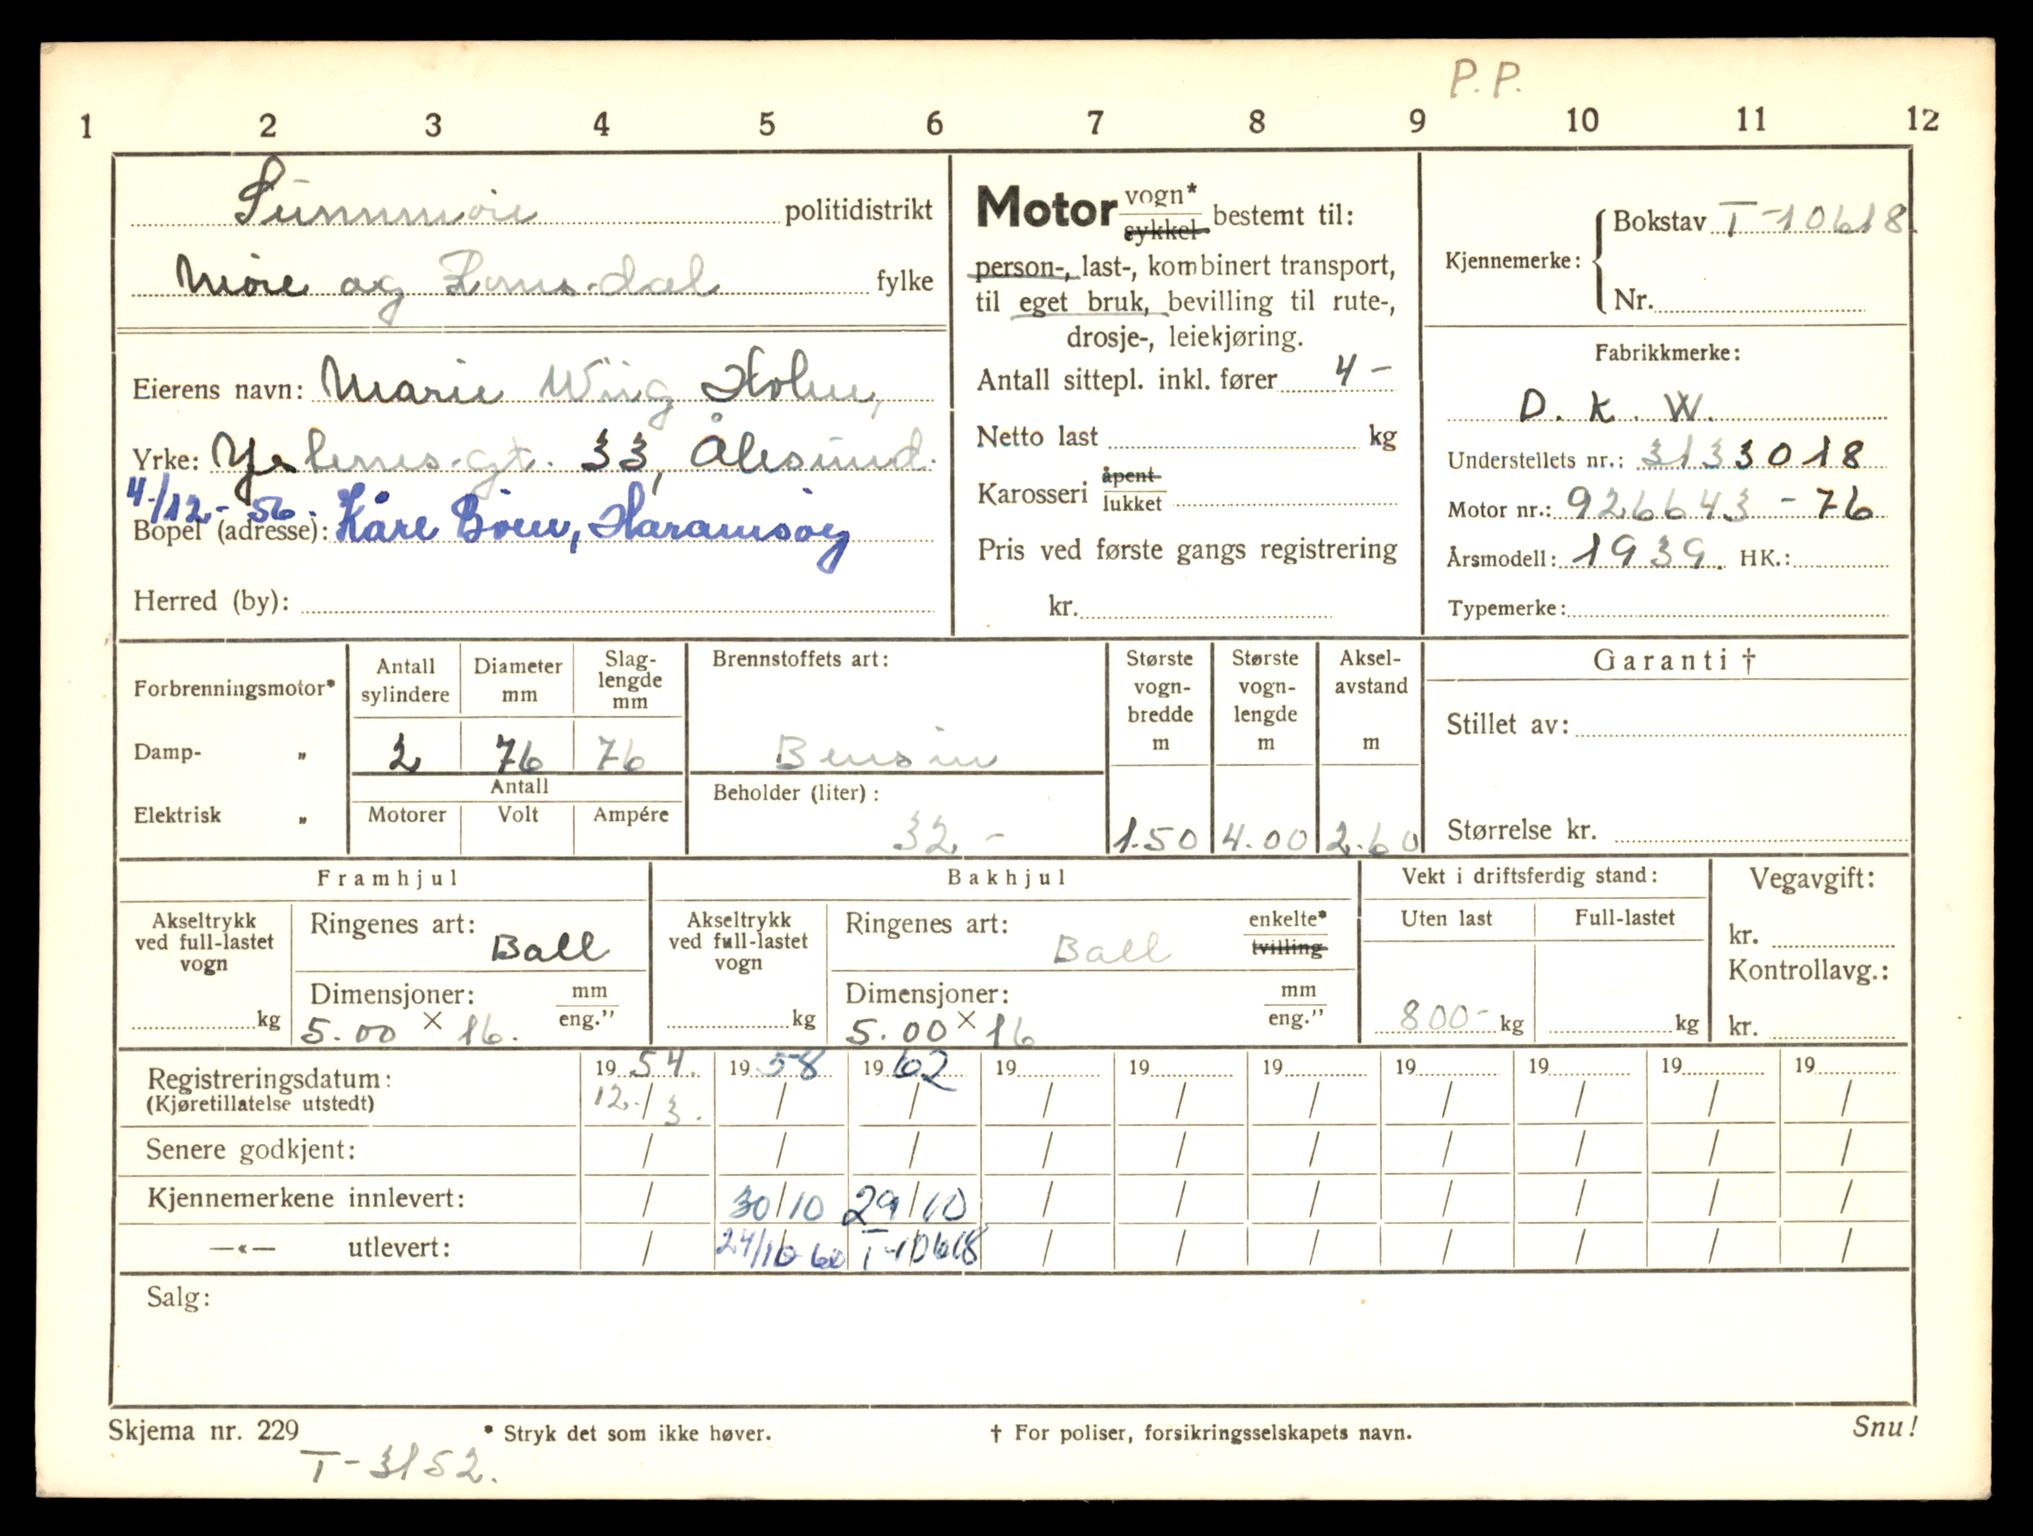 P. P.
1 2 3 4 5 6 7 8 9 10 11 12
Sunnmøre politidistrikt
Møre og Romsdal fylke
Eierens navn: Marie Wiig Holm,
Yrke: Ystenesgt. 33, Ålesund.
4/12-56.
Bopel (adresse): Kåre Bøen, Haramsøy
Herred (by):
Motor vogn* sykkel bestemt til:
person-, last-, kombinert transport,
til eget bruk, bevilling til rute-,
drosje-, leiekjøring.
Antall sittepl. inkl. fører 4 -
Netto last kg
Karosseri åpent lukket
Pris ved første gangs registrering
kr.
Kjennemerke: Bokstav T-10618
Nr.
Fabrikkmerke:
D. K. W.
Understellets nr.: 3133018
Motor nr.: 926643 - 76
Årsmodell: 1939. HK.:
Typemerke:
Forbrenningsmotor*
Damp- „
Elektrisk „
Antall sylindere Diameter mm Slag-lengde mm
2 76 76
Antall
Motorer Volt Ampére
Brennstoffets art:
Bensin
Beholder (liter):
32 -
Største vogn-bredde m
1.50
Største vogn-lengde m
4.00
Aksel-avstand m
2.60
Garanti †
Stillet av:
Størrelse kr.
Framhjul
Akseltrykk ved full-lastet vogn
kg
Ringenes art:
Ball
Dimensjoner: mm eng.”
5.00 × 16.
Bakhjul
Akseltrykk ved full-lastet vogn
kg
Ringenes art: enkelte* tvilling
Ball
Dimensjoner: mm eng.”
5.00 × 16
Vekt i driftsferdig stand:
Uten last Full-lastet
800- kg kg
Vegavgift:
kr.
Kontrollavg.:
kr.
Registreringsdatum: 19 54. 19 58 19 62 19 19 19 19 19 19 19
(Kjøretillatelse utstedt) 12./3. / / / / / / / / /
Senere godkjent: / / / / / / / / / /
Kjennemerkene innlevert: / 30/10 29/10 / / / / / / /
—«— utlevert: / 24/10-60 T-10618 / / / / / / /
Salg:
Skjema nr. 229 * Stryk det som ikke høver. † For poliser, forsikringsselskapets navn. Snu!
T-3152.